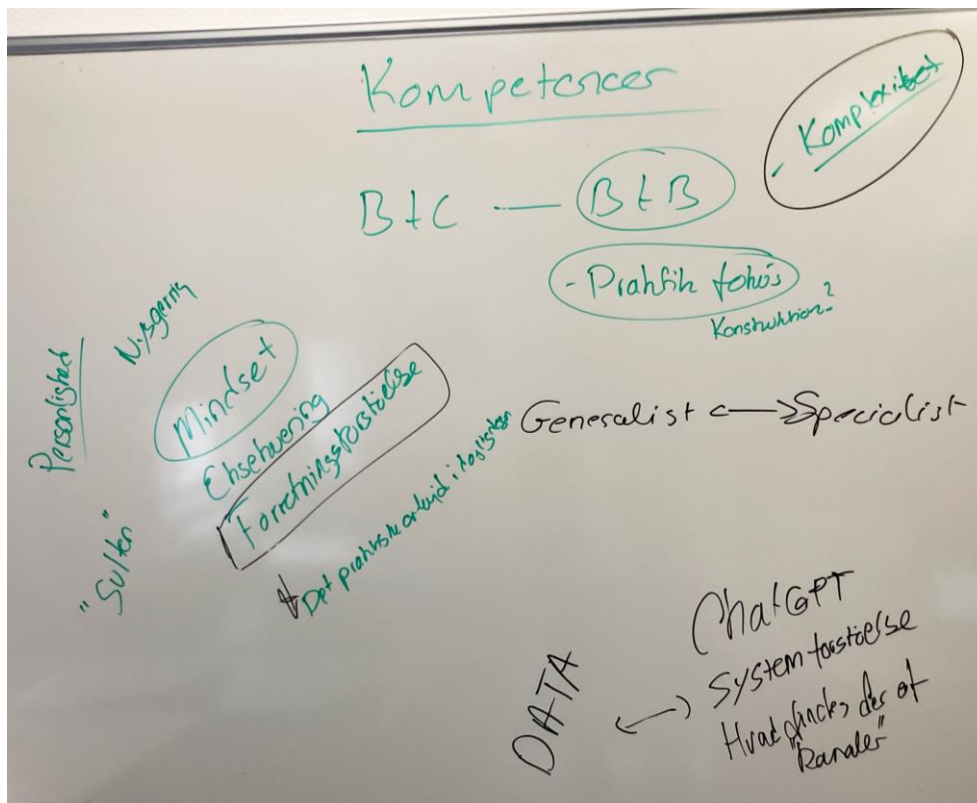 Kompetencer
- Komplexitet
BtC — BtB
- Praktik fokus
Konstruktion?
Personlighed
Nysgerrig
Mindset
Eksekvering
Forretningsforståelse
"Sulten"
Det praktiske arbejd i
Generalist <—> Specialist
DATA <—>
ChatGPT
System forståelse
Hvad findes der af
"Kanaler"